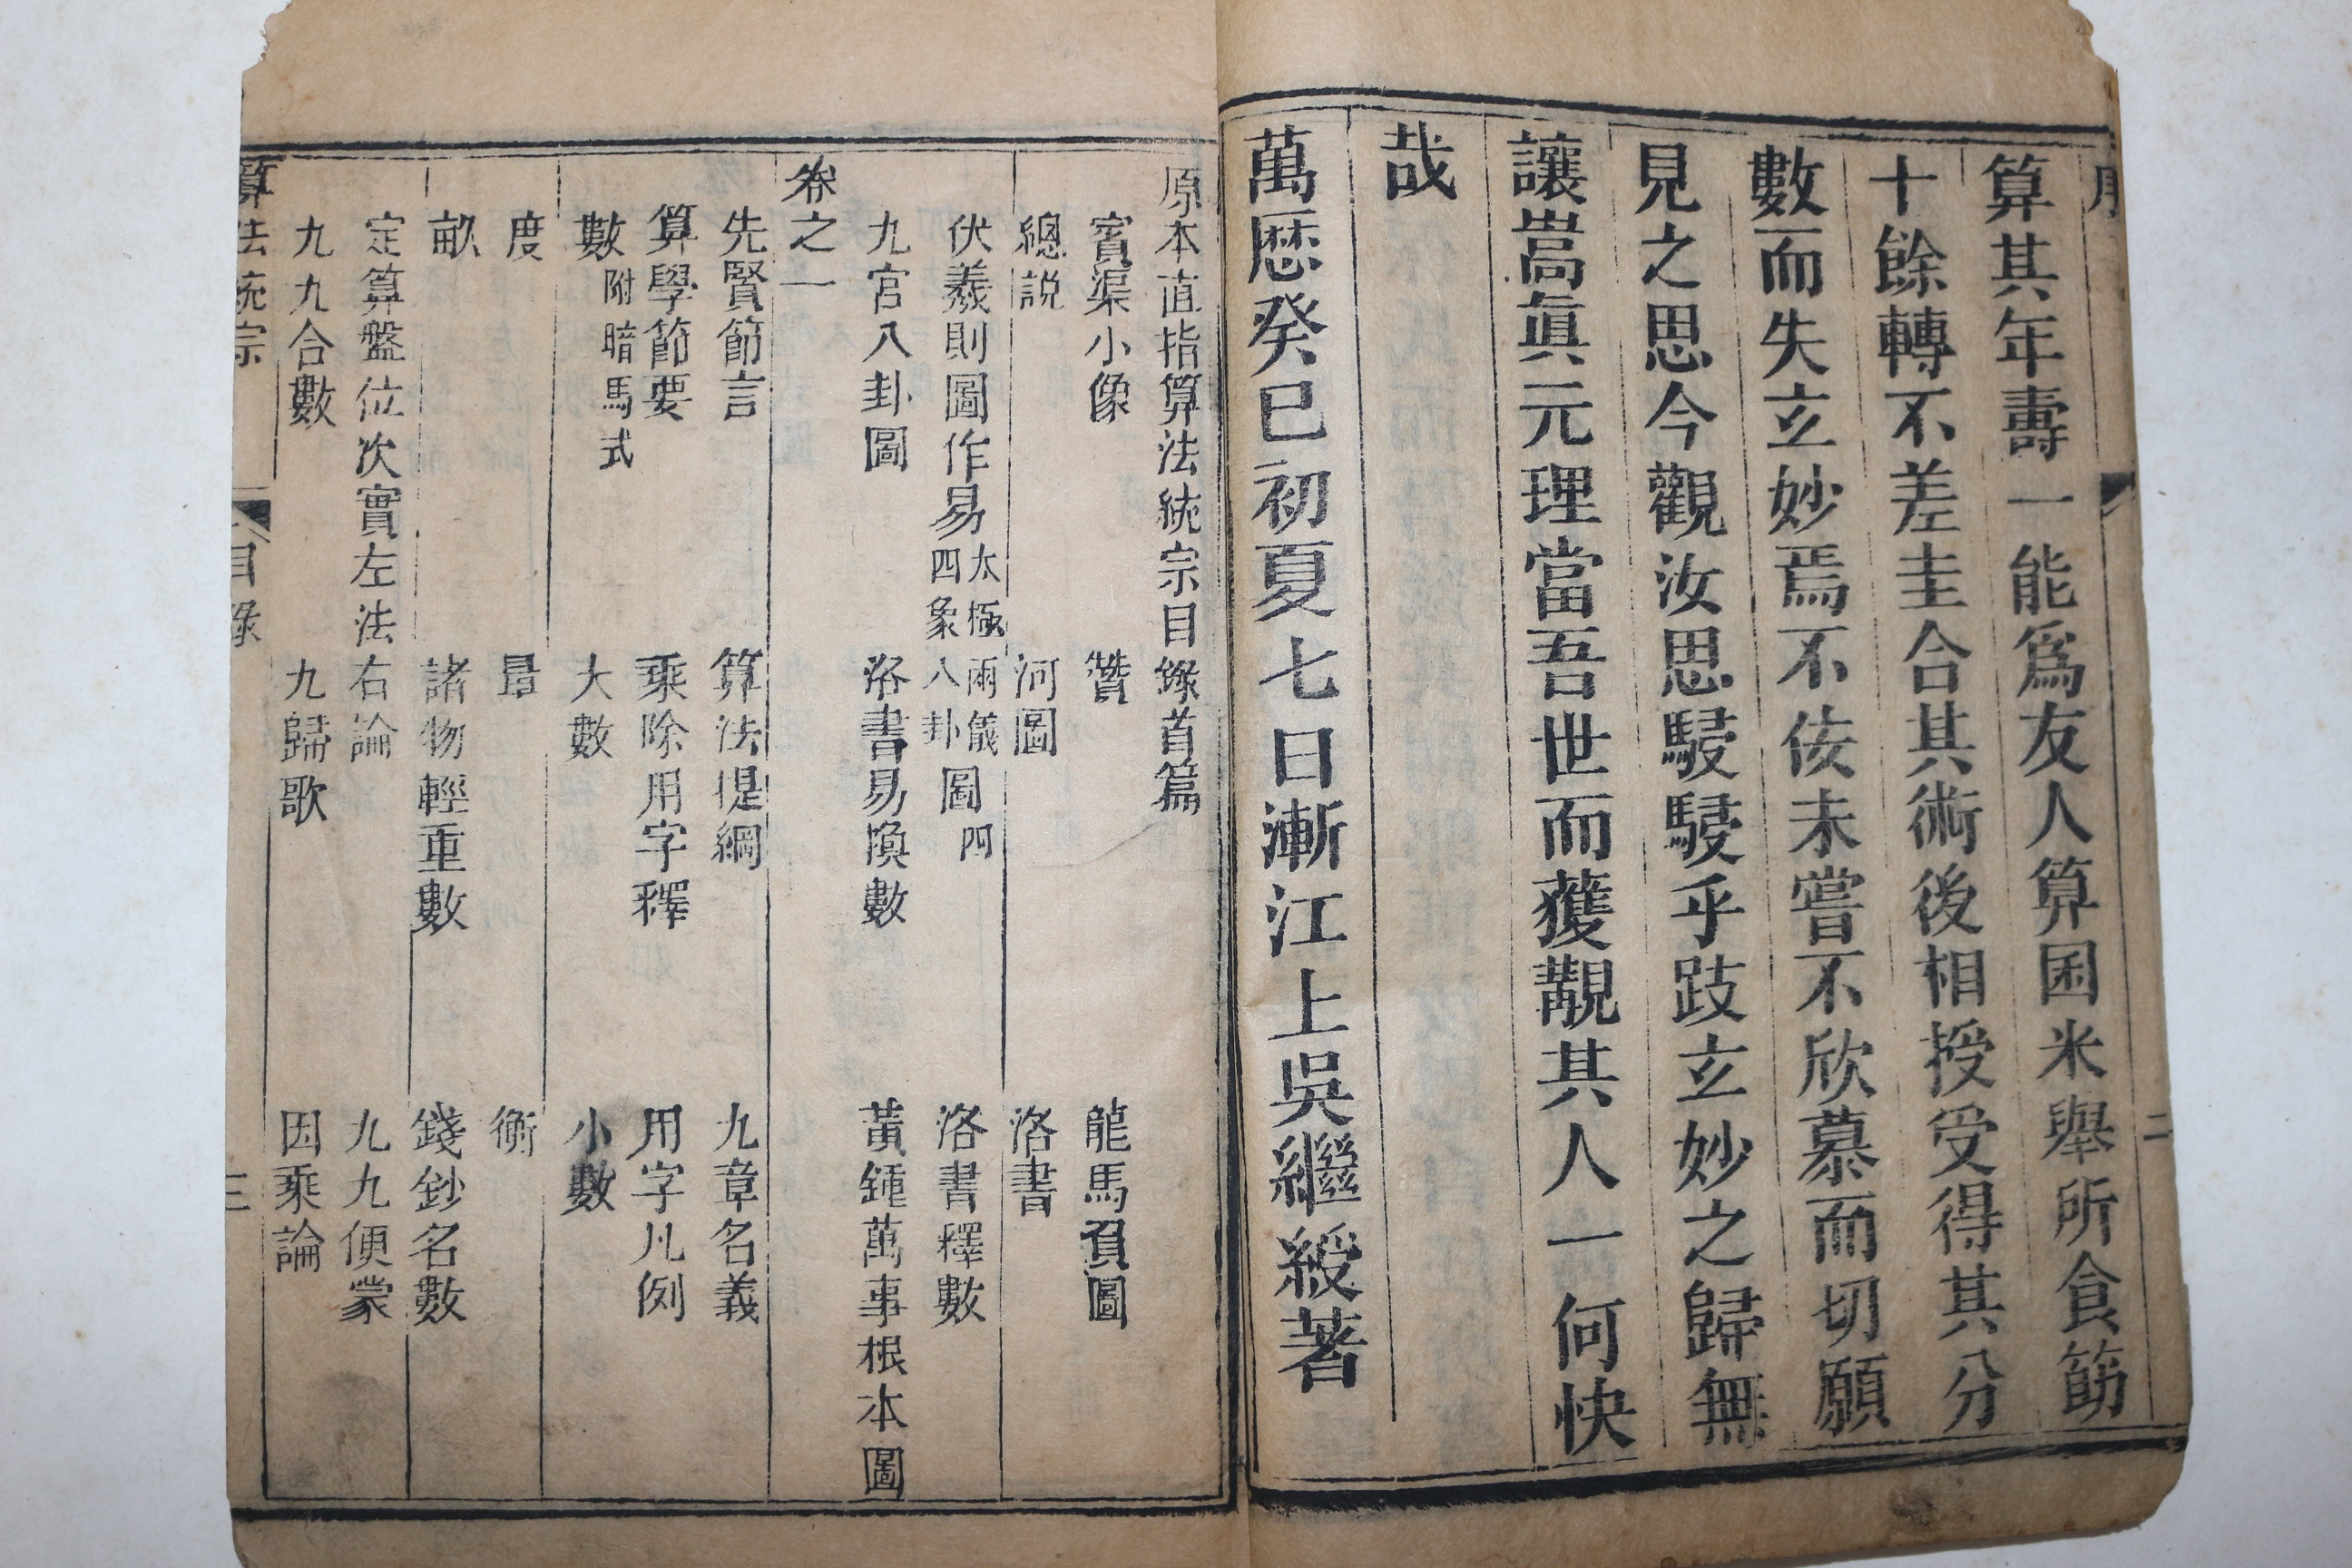 序
二
算其年壽一能爲友人算囷米舉所食筯
十餘轉不差圭合其術後相授受得其分
數而失立妙焉不佞未嘗不欣慕而切願
見之思今觀汝思駸駸乎跂玄妙之歸無
讓嵩眞元理當吾世而獲覯其人一何快
哉
萬厯癸巳初夏七日漸江上吳繼綬著
原本直指算法統宗目錄首篇
賓渠小像 贊 龍馬負圖
總説 河圖 洛書
伏羲則圖作易 太極 兩儀 四象 八卦 圖 四 洛書釋數
九宮八卦圖 洛書易換數 黃鍾萬事根本圖
卷之一
先賢節言 算法提綱 九章名義
算學節要 乘除用字釋 用字凡例
數 附暗馬式 大數 小數
度 量 衡
畝 諸物輕重數 錢鈔名數
定算盤位次實左法右論 九九便蒙
九九合數 九歸歌 因乘論
算法統宗 目錄 三